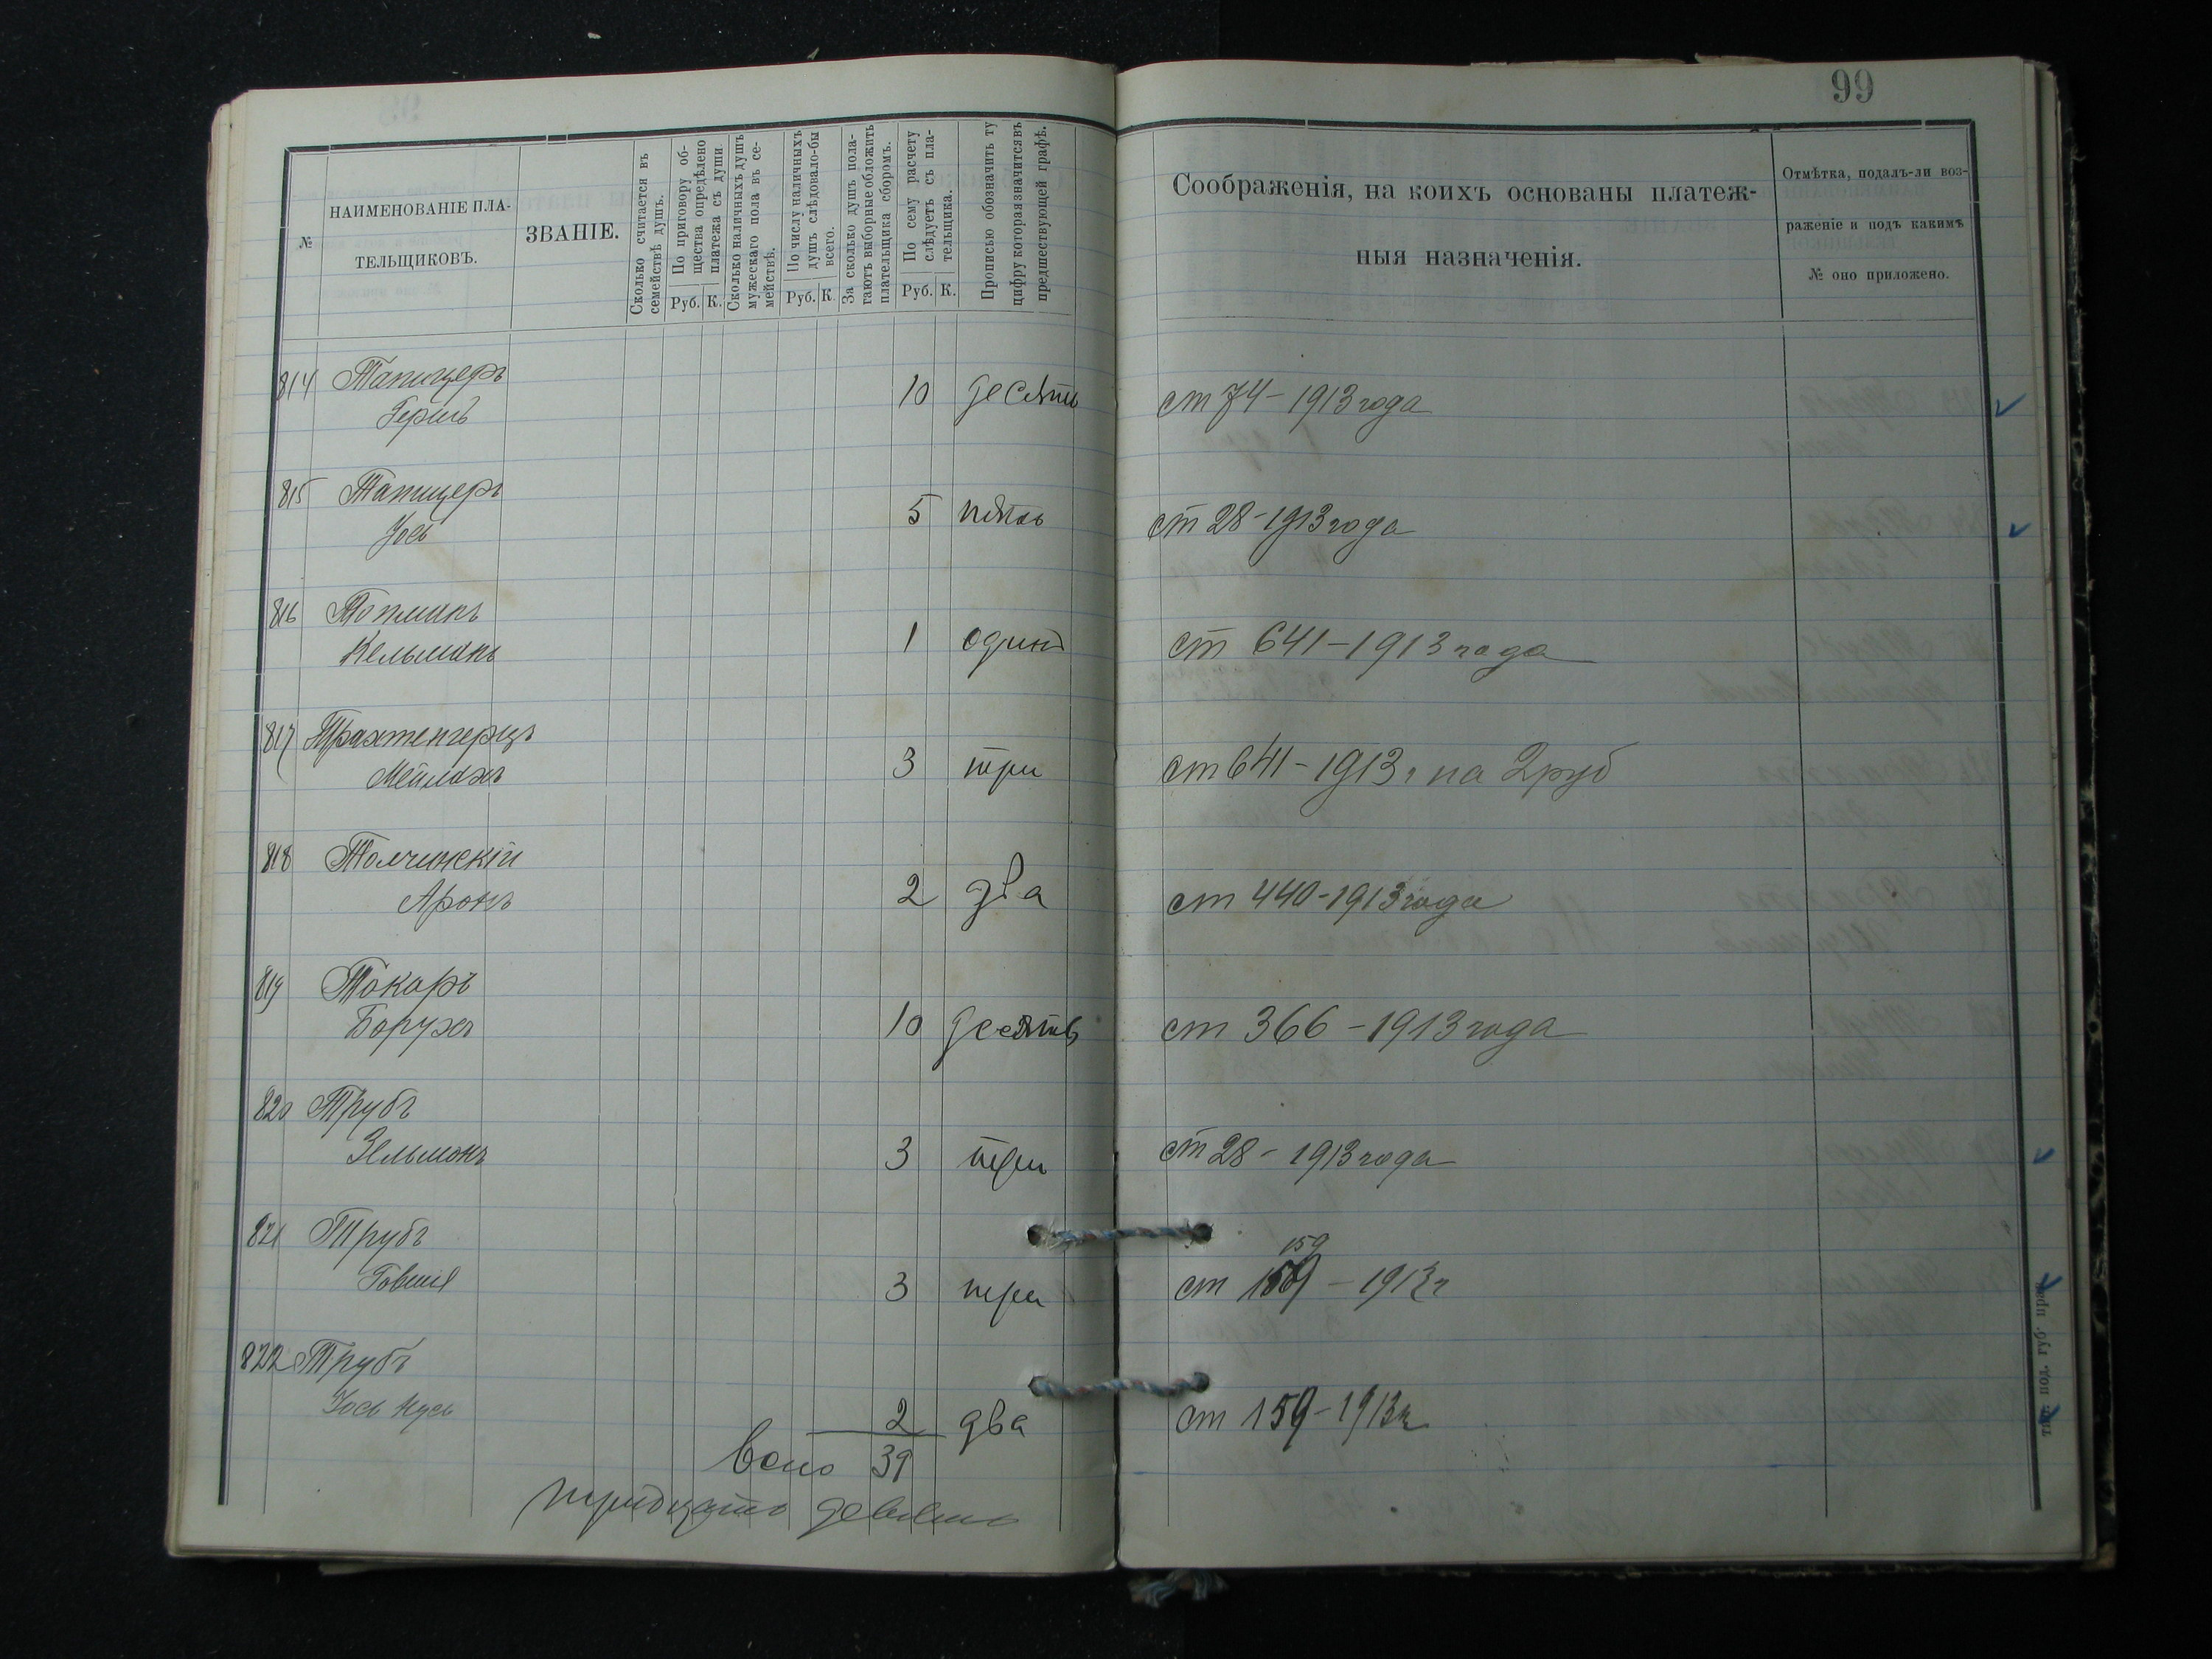 99
№
НАИМЕНОВАНІЕ ПЛА-
ТЕЛЬЩИКОВЪ.
ЗВАНІЕ.
Сколько считается въ
семействѣ душъ.
По приговору об-
щества опредѣлено
платежа съ души
Руб. К.
Сколько наличныхъ душъ
мужескаго пола въ се-
мействѣ.
По числу наличныхъ
душъ слѣдовало-бы
всего.
Руб. К.
За сколько душъ пола-
гаютъ выборные обложить
плательщика сборомъ.
По сему расчету
слѣдуетъ съ пла-
тельщика.
Руб. К.
Прописью обозначить ту
цифру которая значится въ
предшествующей графѣ.
Соображенія, на коихъ основаны платеж-
ныя назначенія.
Отмѣтка, подалъ-ли воз-
раженіе и подъ какимъ
№ оно приложено.
814 Тапицеръ
Гершъ 10 десять ст 74 - 1913 года
815 Тапицеръ
Іось 5 пять ст 28 - 1913 года
816
Кельманъ 1 одинъ ст 641 - 1913 года
817 Трахтенгерцъ
Мейлахъ 3 три ст 641 - 1913 г на 2 руб
818 Толчинскій
Аронъ 2 два ст 440 - 1913 года
819 Токаръ
Борухъ 10 десять ст 366 - 1913 года
820 Трубъ
Зельманъ 3 три ст 28 - 1913 года
821 Трубъ
159
Говшія 3 три ст 159 - 1913 г
822 Трубъ
Іось 2 два ст 159 - 1913 г
Всего 39
тридцать девять
тип. под. губ. прав.